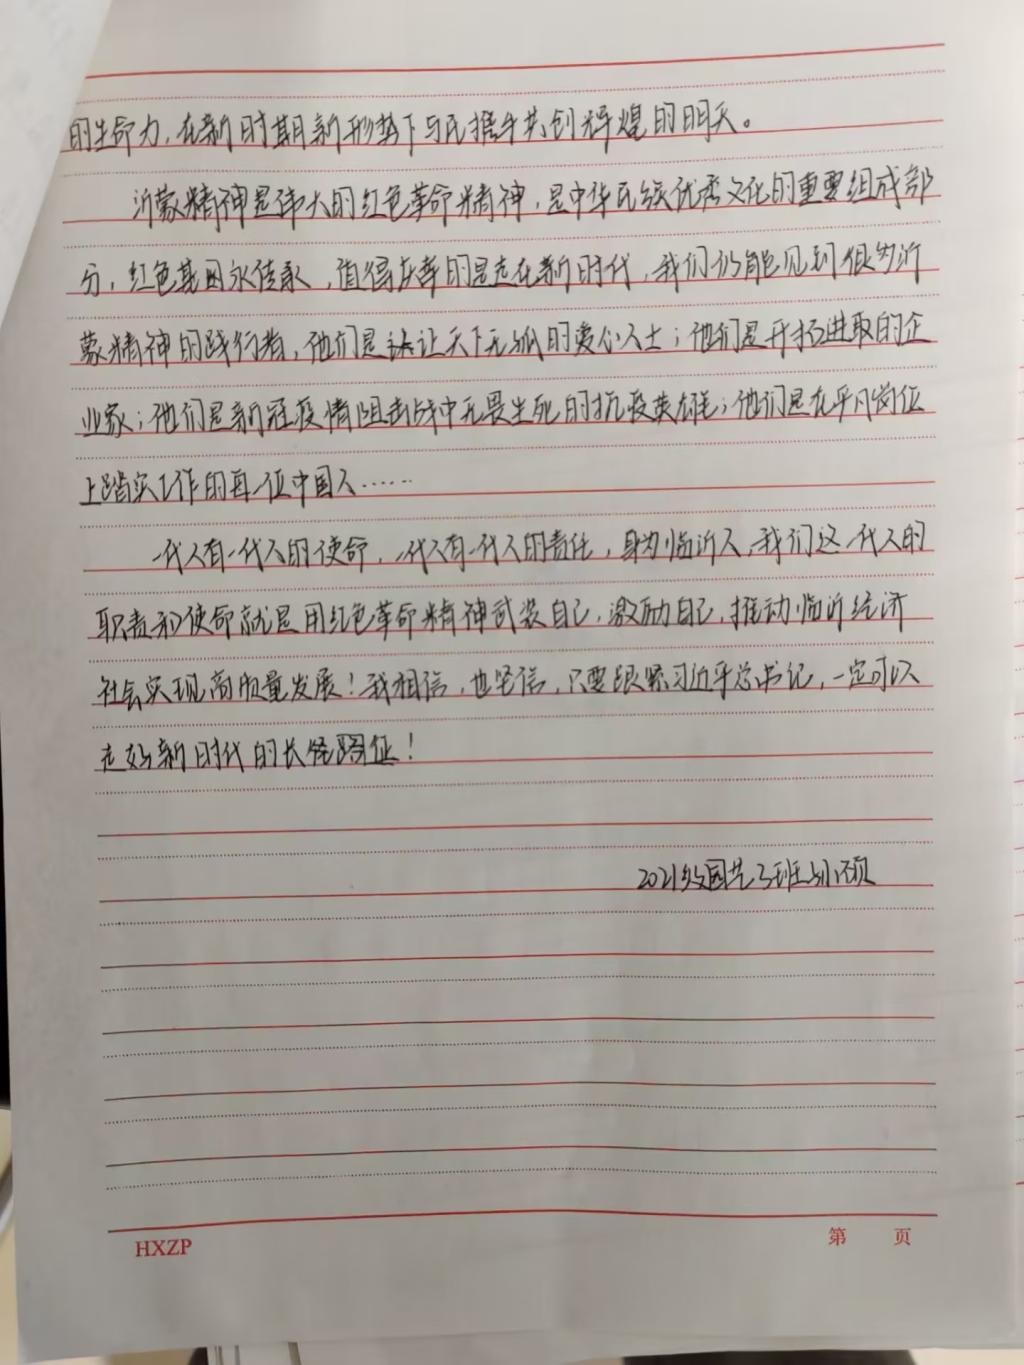 的生命力,在新时期新形势下与民携手共创辉煌的明天。
沂蒙精神是伟大的红色革命精神,是中华民族优秀文化的重要组成部
分,红色基因永传承,值得庆幸的是走在新时代,我们仍能见到很多沂
蒙精神的践行者,他们是让天下无孤的爱心人士;他们是开拓进取的企
业家;他们是新冠疫情阻击战中无畏生死的抗疫英雄;他们是在平凡岗位
上踏实工作的每一位中国人……
一代人有一代人的使命,一代人有一代人的责任,身为临沂人,我们这一代人的
职责和使命就是用红色革命精神武装自己,激励自己,推动临沂经济
社会实现高质量发展!我相信,也坚信,只要跟紧习近平总书记,一定可以
走好新时代的长征路!
2021级园艺3班
HXZP
第 页